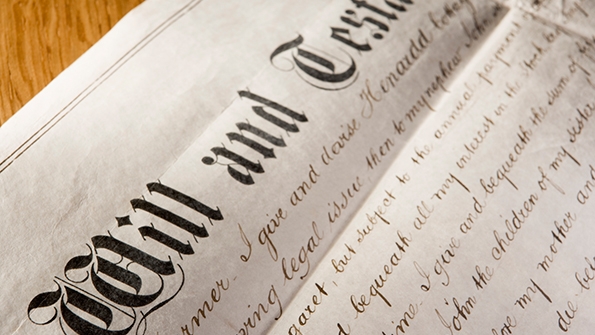 Will and Testa
rmer. I give and devise Henardd
ving legal issue then to my nephew John
garet, but subject to the annual payment
d bequeath all my interest in the stock and
time. I give and bequeath the sum of
John the children of my sister
ve my mother and
die